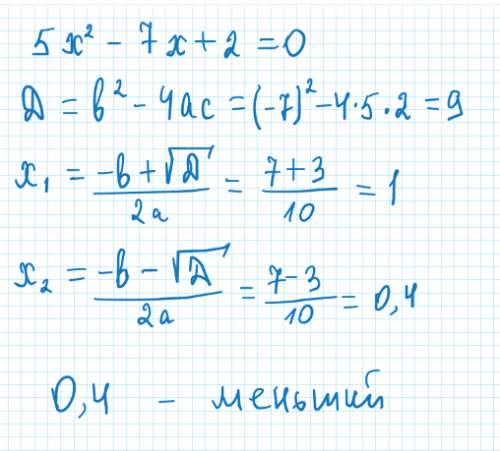 5x² - 7x + 2 = 0
D = b² - 4ac = (-7)² - 4·5·2 = 9
x₁ = (-b + √D) / 2a = (7 + 3) / 10 = 1
x₂ = (-b - √D) / 2a = (7 - 3) / 10 = 0,4
0,4 - меньший